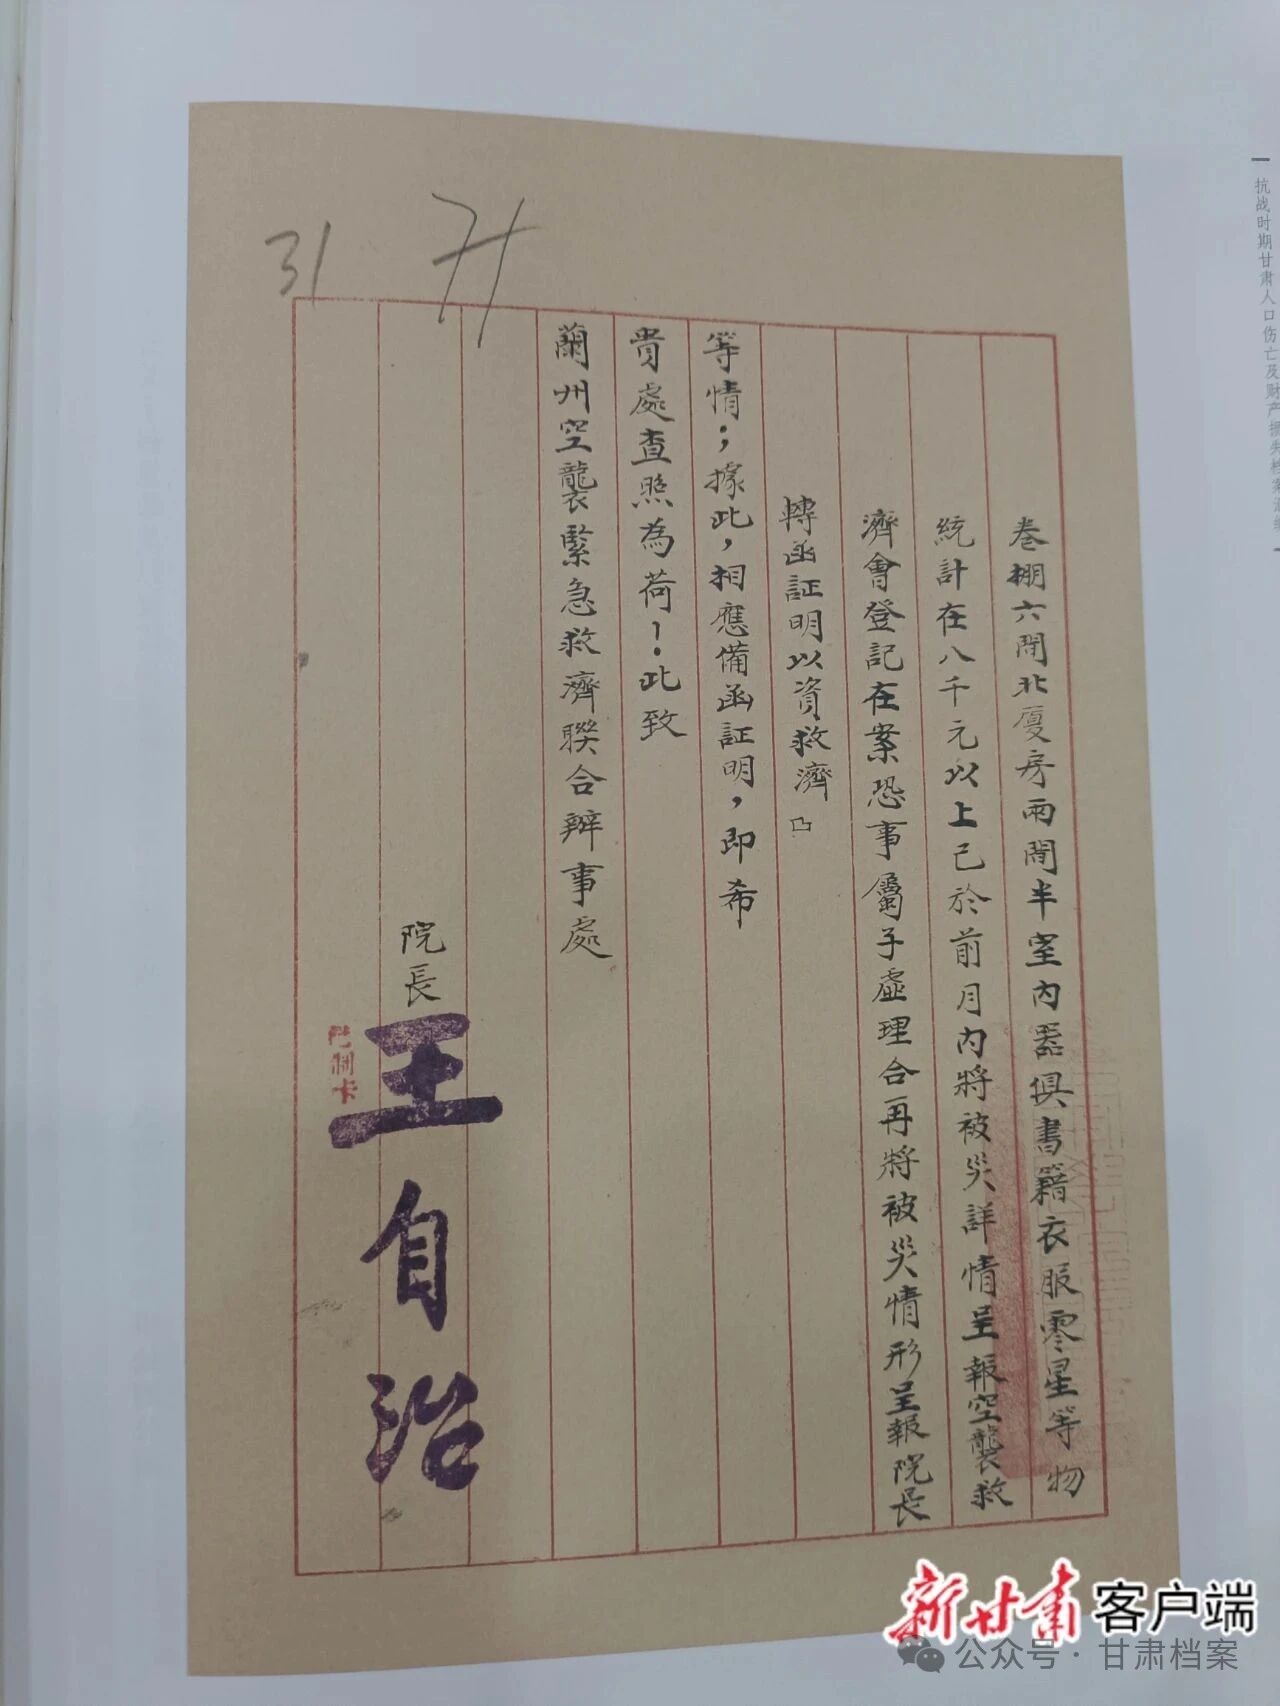 卷棚六間北廈房兩間半室內器俱書籍衣服零星等物
統計在八千元以上已於前月內將被災詳情呈報空襲救
濟會登記在案恐事屬子虛理合再將被災情形呈報院長
轉函証明以資救濟」
等情；據此，相應備函証明，即希
貴處查照為荷！此致
蘭州空襲緊急救濟聯合辦事處
院長 王自治
31
抗战时期甘肃人口伤亡及财产损失档案
新甘肃 客户端
公众号·甘肃档案